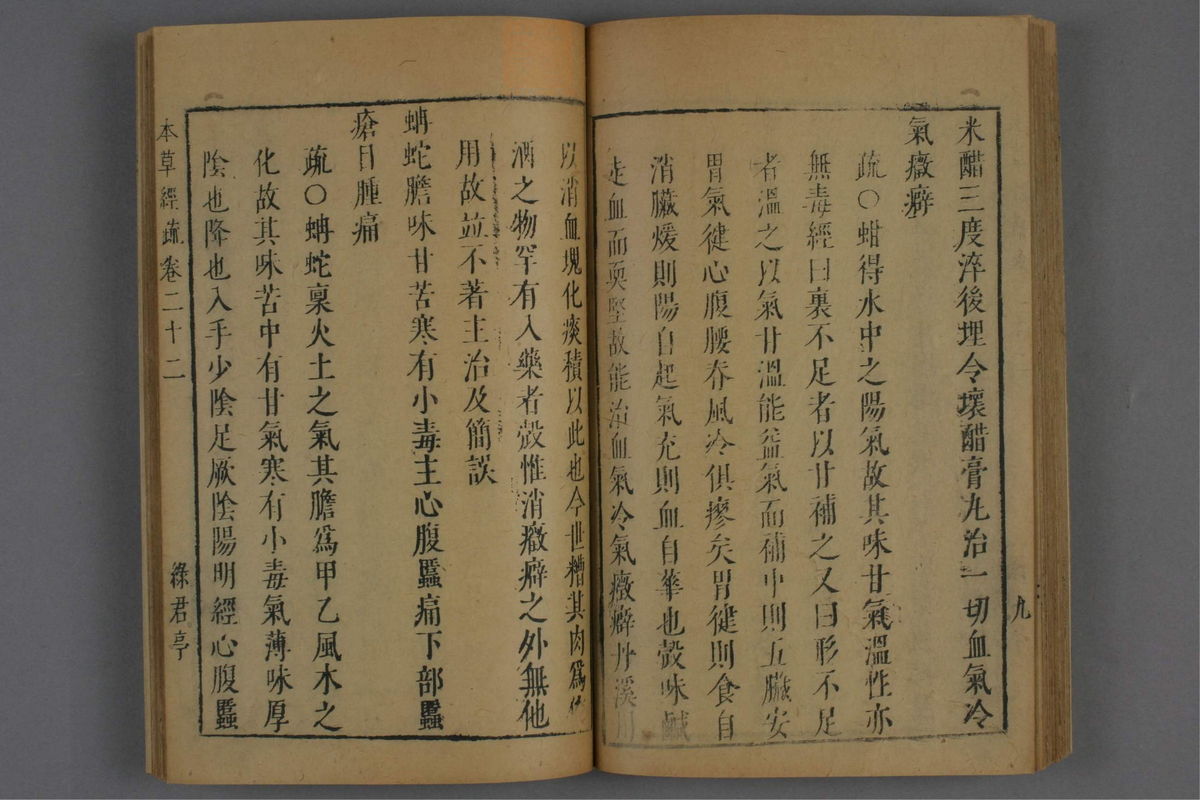 米醋三度淬後埋令壞醋膏丸治一切血氣冷
氣癥癖
疏○蚶得水中之陽氣故其味甘氣溫性亦
無毒經曰裏不足者以甘補之又曰形不足
者溫之以氣甘溫能益氣而補中則五臟安
胃氣徤心腹腰脊風冷俱瘳矣胃徤則食自
消臟煖則陽自起氣充則血自華也殼味鹹
走血而耎堅故能治血氣冷氣癥癖丹溪用
九
以消血塊化痰積以此也今世糟其肉爲
酒之物罕有入藥者殼惟消癥癖之外無他
用故並不著主治及簡誤
蚺蛇膽味甘苦寒有小毒主心腹䘌痛下部䘌
瘡目腫痛
疏○蚺蛇禀火土之氣其膽爲甲乙風木之
化故其味苦中有甘氣寒有小毒氣薄味厚
陰也降也入手少陰足厥陰陽明經心腹䘌
本草經疏卷二十二
綠君亭